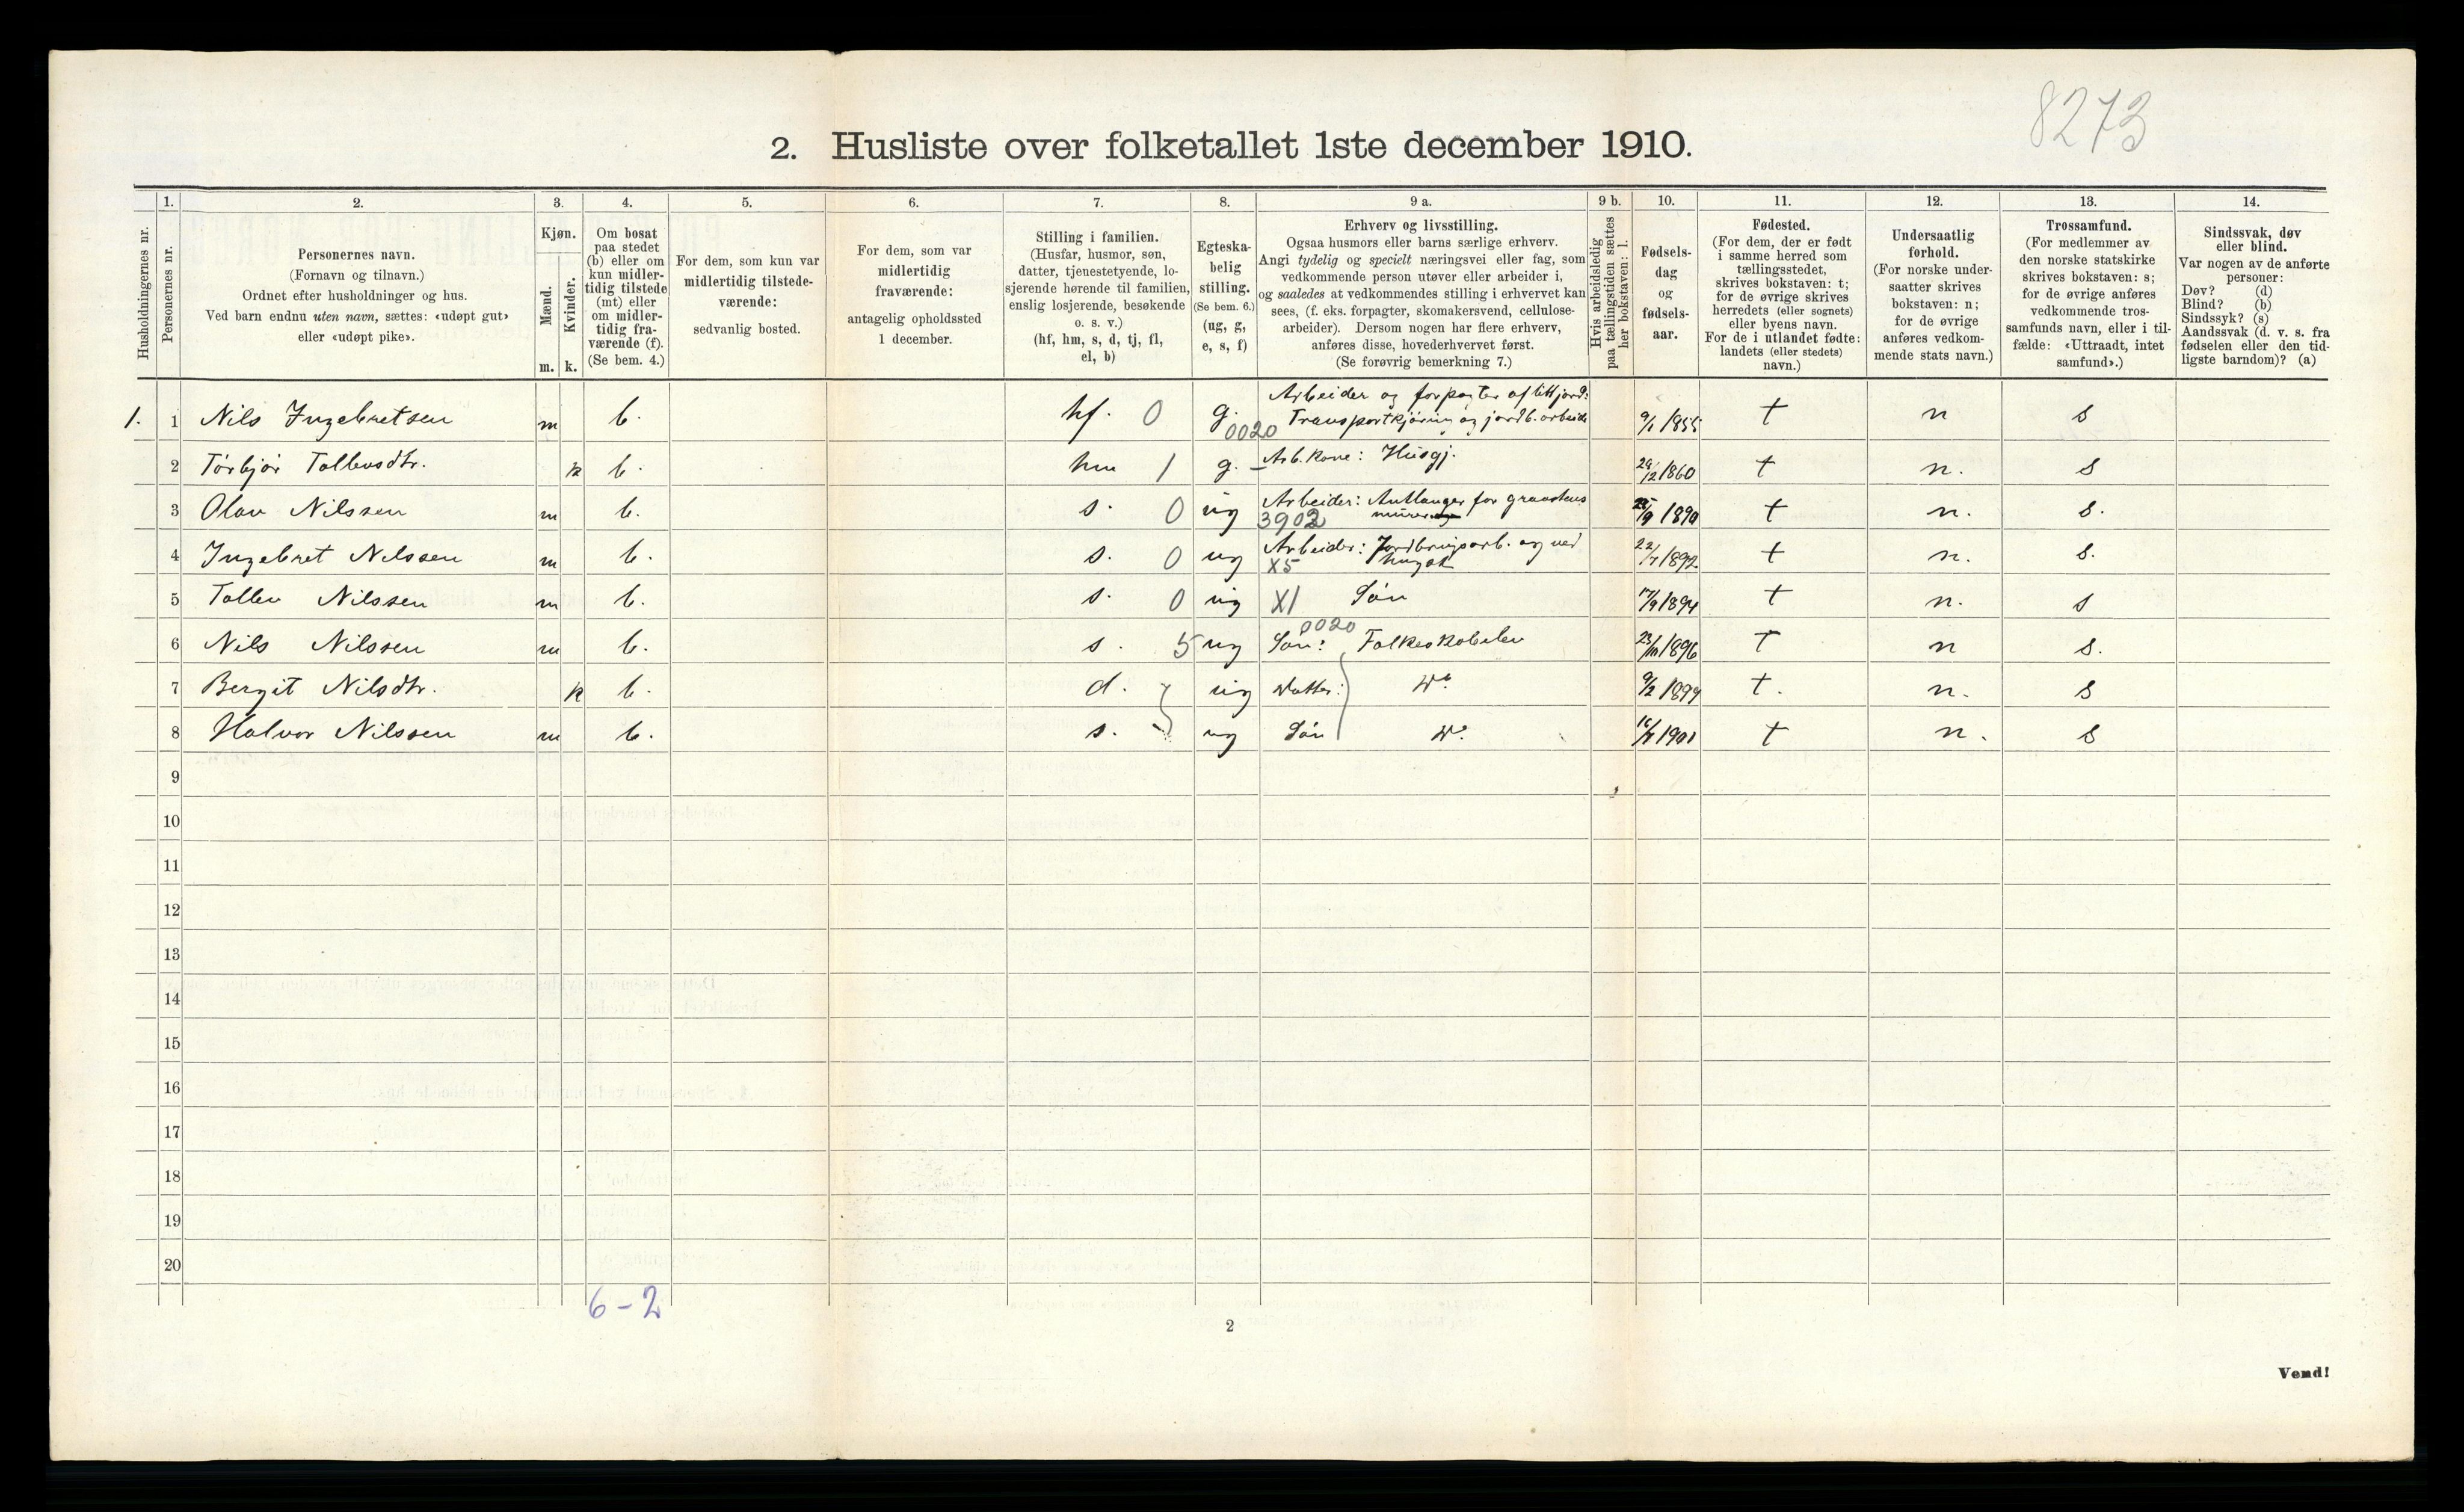 8273
2. Husliste over folketallet 1ste december 1910.
Husholdningernes nr.
1.
Personernes nr.
2.
Personernes navn.
(Fornavn og tilnavn.)
Ordnet efter husholdninger og hus.
Ved barn endnu uten navn, sættes: «udøpt gut»
eller «udøpt pike».
3.
Kjøn.
Mænd.
Kvinder.
m. k.
4.
Om bosat
paa stedet
(b) eller om
kun midler-
tidig tilstede
(mt) eller
om midler-
tidig fra-
værende (f).
(Se bem. 4.)
5.
For dem, som kun var
midlertidig tilstede-
værende:
sedvanlig bosted.
6.
For dem, som var
midlertidig
fraværende:
antagelig opholdssted
1 december.
7.
Stilling i familien.
(Husfar, husmor, søn,
datter, tjenestetyende, lo-
sjerende hørende til familien,
enslig losjerende, besøkende
o. s. v.)
(hf, hm, s, d, tj, fl,
el, b)
8.
Egteska-
belig
stilling.
(Se bem. 6.)
(ug, g,
e, s, f)
9 a.
Erhverv og livsstilling.
Ogsaa husmors eller barns særlige erhverv.
Angi tydelig og specielt næringsvei eller fag, som
vedkommende person utøver eller arbeider i,
og saaledes at vedkommendes stilling i erhvervet kan
sees, (f. eks. forpagter, skomakersvend, cellulose-
arbeider). Dersom nogen har flere erhverv,
anføres disse, hovederhvervet først.
(Se forøvrig bemerkning 7.)
9 b.
Hvis arbeidsledig
paa tællingstiden sættes
her bokstaven: l.
10.
Fødsels-
dag
og
fødsels-
aar.
11.
Fødested.
(For dem, der er født
i samme herred som
tællingsstedet,
skrives bokstaven: t;
for de øvrige skrives
herredets (eller sognets)
eller byens navn.
For de i utlandet fødte:
landets (eller stedets)
navn.)
12.
Undersaatlig
forhold.
(For norske under-
saatter skrives
bokstaven: n;
for de øvrige
anføres vedkom-
mende stats navn.)
13.
Trossamfund.
(For medlemmer av
den norske statskirke
skrives bokstaven: s;
for de øvrige anføres
vedkommende tros-
samfunds navn, eller i til-
fælde: «Uttraadt, intet
samfund».)
14.
Sindssvak, døv
eller blind.
Var nogen av de anførte
personer:
Døv? (d)
Blind? (b)
Sindssyk? (s)
Aandssvak (d. v. s. fra
fødselen eller den tid-
ligste barndom)? (a)
Arbeider og forpagter af litt jord:
1. 1 Nils Ingebretsen m b. hf. 0 g. 0020 Transportkjøring og jordb. arbeide 9/1 1855 t n s
2 Torbjør Tollevsdtr. k b. hm 1 g. - Arb. kone: Husgj. 12 1860 t n. s
3 Olav Nilssen m b. s. 0 ug Arbeider: Antlanger for graastens 9 1890 t n. s.
3902
4 Ingebret Nilssen m b. s. 0 ug Arbeider: Jordbrugsarb. og ved 1892 t n. s.
X5 hugst
5 Tollev Nilssen m b. s. 0 ug X1 Søn 17/9 1894 t n. s
0020
6 Nils Nilssen m b. s. 5 ug Søn: Folkeskolelev 23/10 1896 t n s.
7 Bergit Nilsdtr. k b. d. ug Datter: Do 9/2 1899 t. n. s
8 Halvor Nilssen m b. s. ug Søn Do 1901 t n. s
9
10
11
12
13
14
15
16
17
18
19
20
6-2
2
Vend!